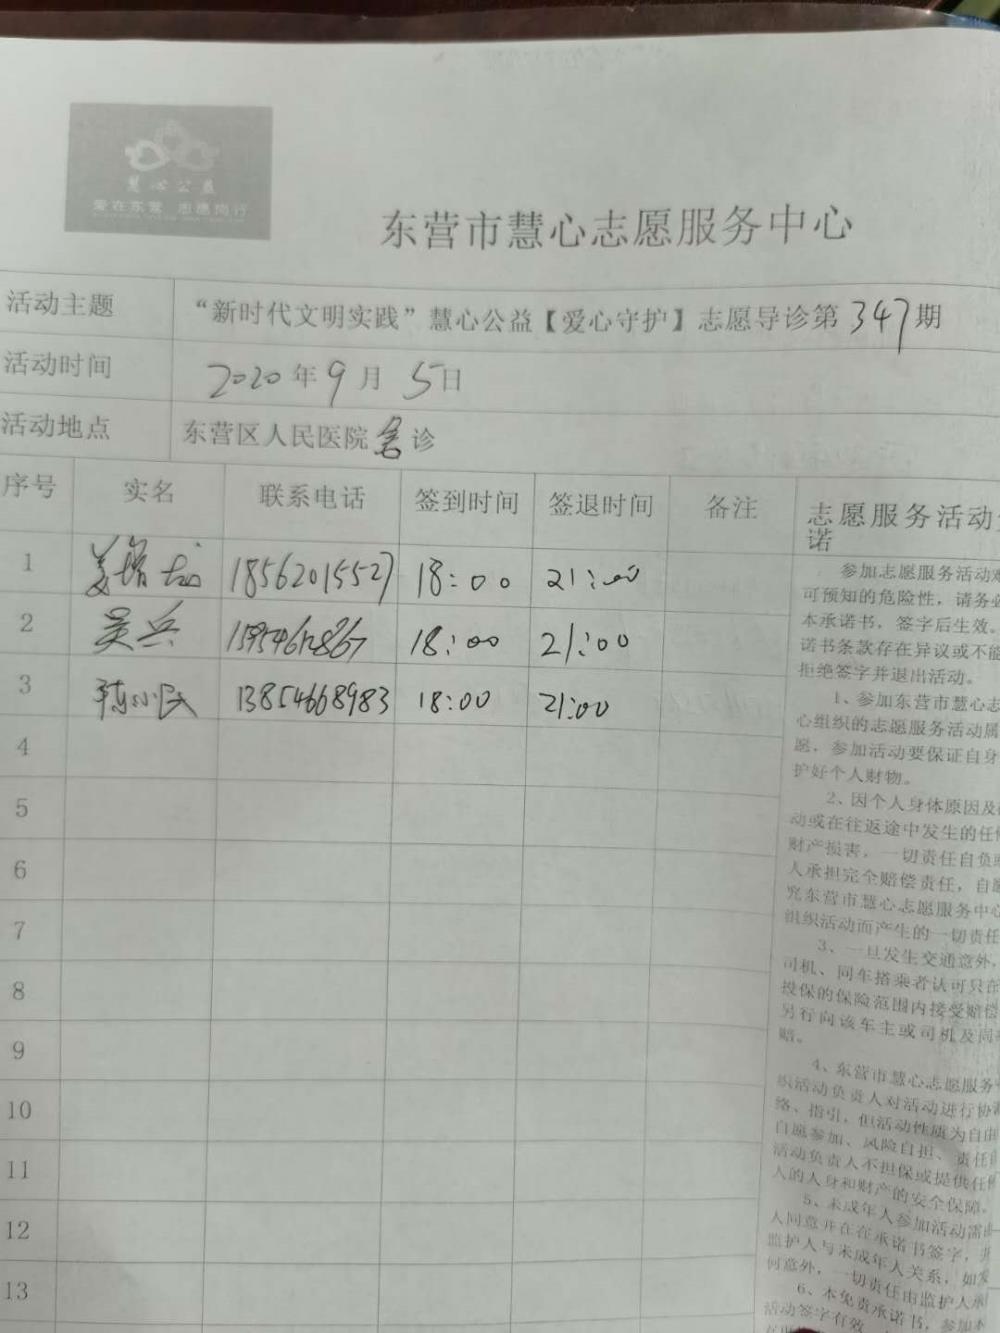 慧心公益
爱在东营 志愿同行
东营市慧心志愿服务中心
活动主题 “新时代文明实践”慧心公益【爱心守护】志愿导诊第347期
活动时间 2020年9月5日
活动地点 东营区人民医院急诊
序号 实名 联系电话 签到时间 签退时间 备注 志愿服务活动
诺
1 姜增 18562015527 18:00 21:00
2 吴兵 18:00 21:00
3 陈小民 13854668983 18:00 21:00
4
5
6
7
8
9
10
11
12
13
参加志愿服务活动难
可预知的危险性，请务必
本承诺书，签字后生效。
诺书条款存在异议或不能
拒绝签字并退出活动。
1、参加东营市慧心志
心组织的志愿服务活动属
愿，参加活动要保证自身
护好个人财物。
2、因个人身体原因及
动或在往返途中发生的任何
财产损害，一切责任自负
人承担完全赔偿责任，自愿
究东营市慧心志愿服务中心
组织活动而产生的一切责任
3、一旦发生交通意外，
司机、同车搭乘者认可只在
投保的保险范围内接受赔偿
另行向该车主或司机及同
赔。
4、东营市慧心志愿服务
织活动负责人对活动进行协
络、指引，但活动性质为自由
自愿参加、风险自担、责任
活动负责人不担保或提供任何
人的人身和财产的安全保障。
5、未成年人参加活动需由
人同意并在在承诺书签字，
监护人与未成年人关系，如发
何意外，一切责任由监护人承
6、本免责承诺书，参加本
活动签字有效